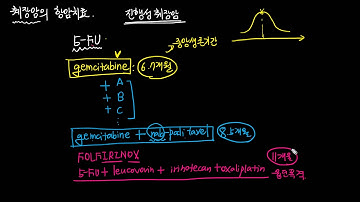 췌장암의 항암치료. 진행성 췌장암
5-FU
gemcitabine : 6.7개월 → 중앙생존기간
+ A
+ B
+ C
⋮
gemcitabine + nab-paclitaxel 8.5개월
FOLFIRINOX 11개월
5-FU + leucovorin + irinotecan + oxaliplatin